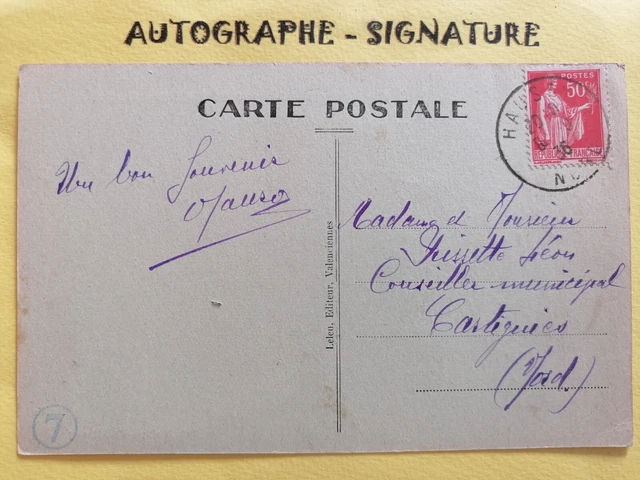 AUTOGRAPHE - SIGNATURE
CARTE POSTALE
POSTES
50c
REPUBLIQUE FRANCAISE
HAU
NO
Un bon Souvenir
Leleu, Editeur, Valenciennes
Madame et Monsieur
Léon
Conseiller municipal
Cartignies
(Nord.)
7